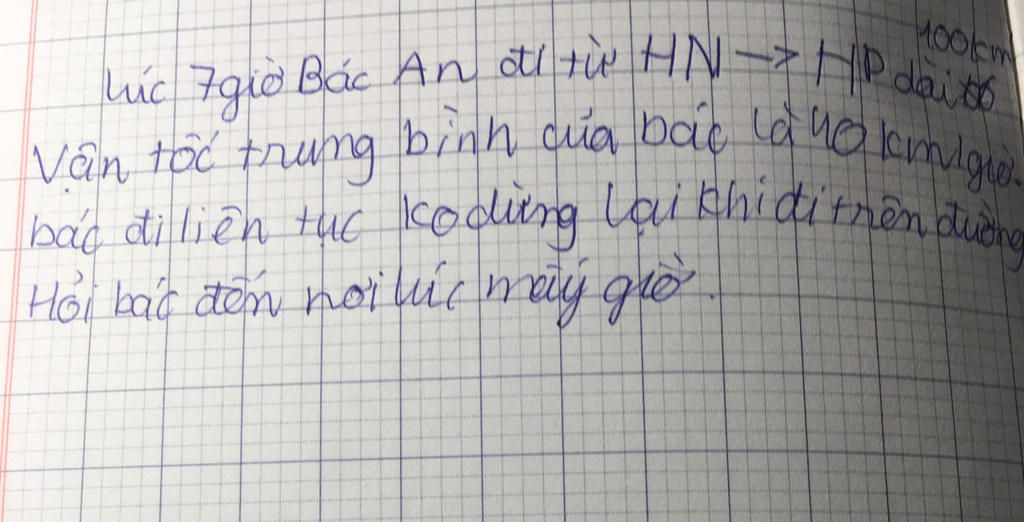 100km
lúc 7giờ Bác An đi từ HN → HP dài
Vận tốc trung bình của bác là 40 km/giờ.
bác đi liên tục ko dừng lại khi đi trên đường
Hỏi bác đến nơi lúc mấy giờ.